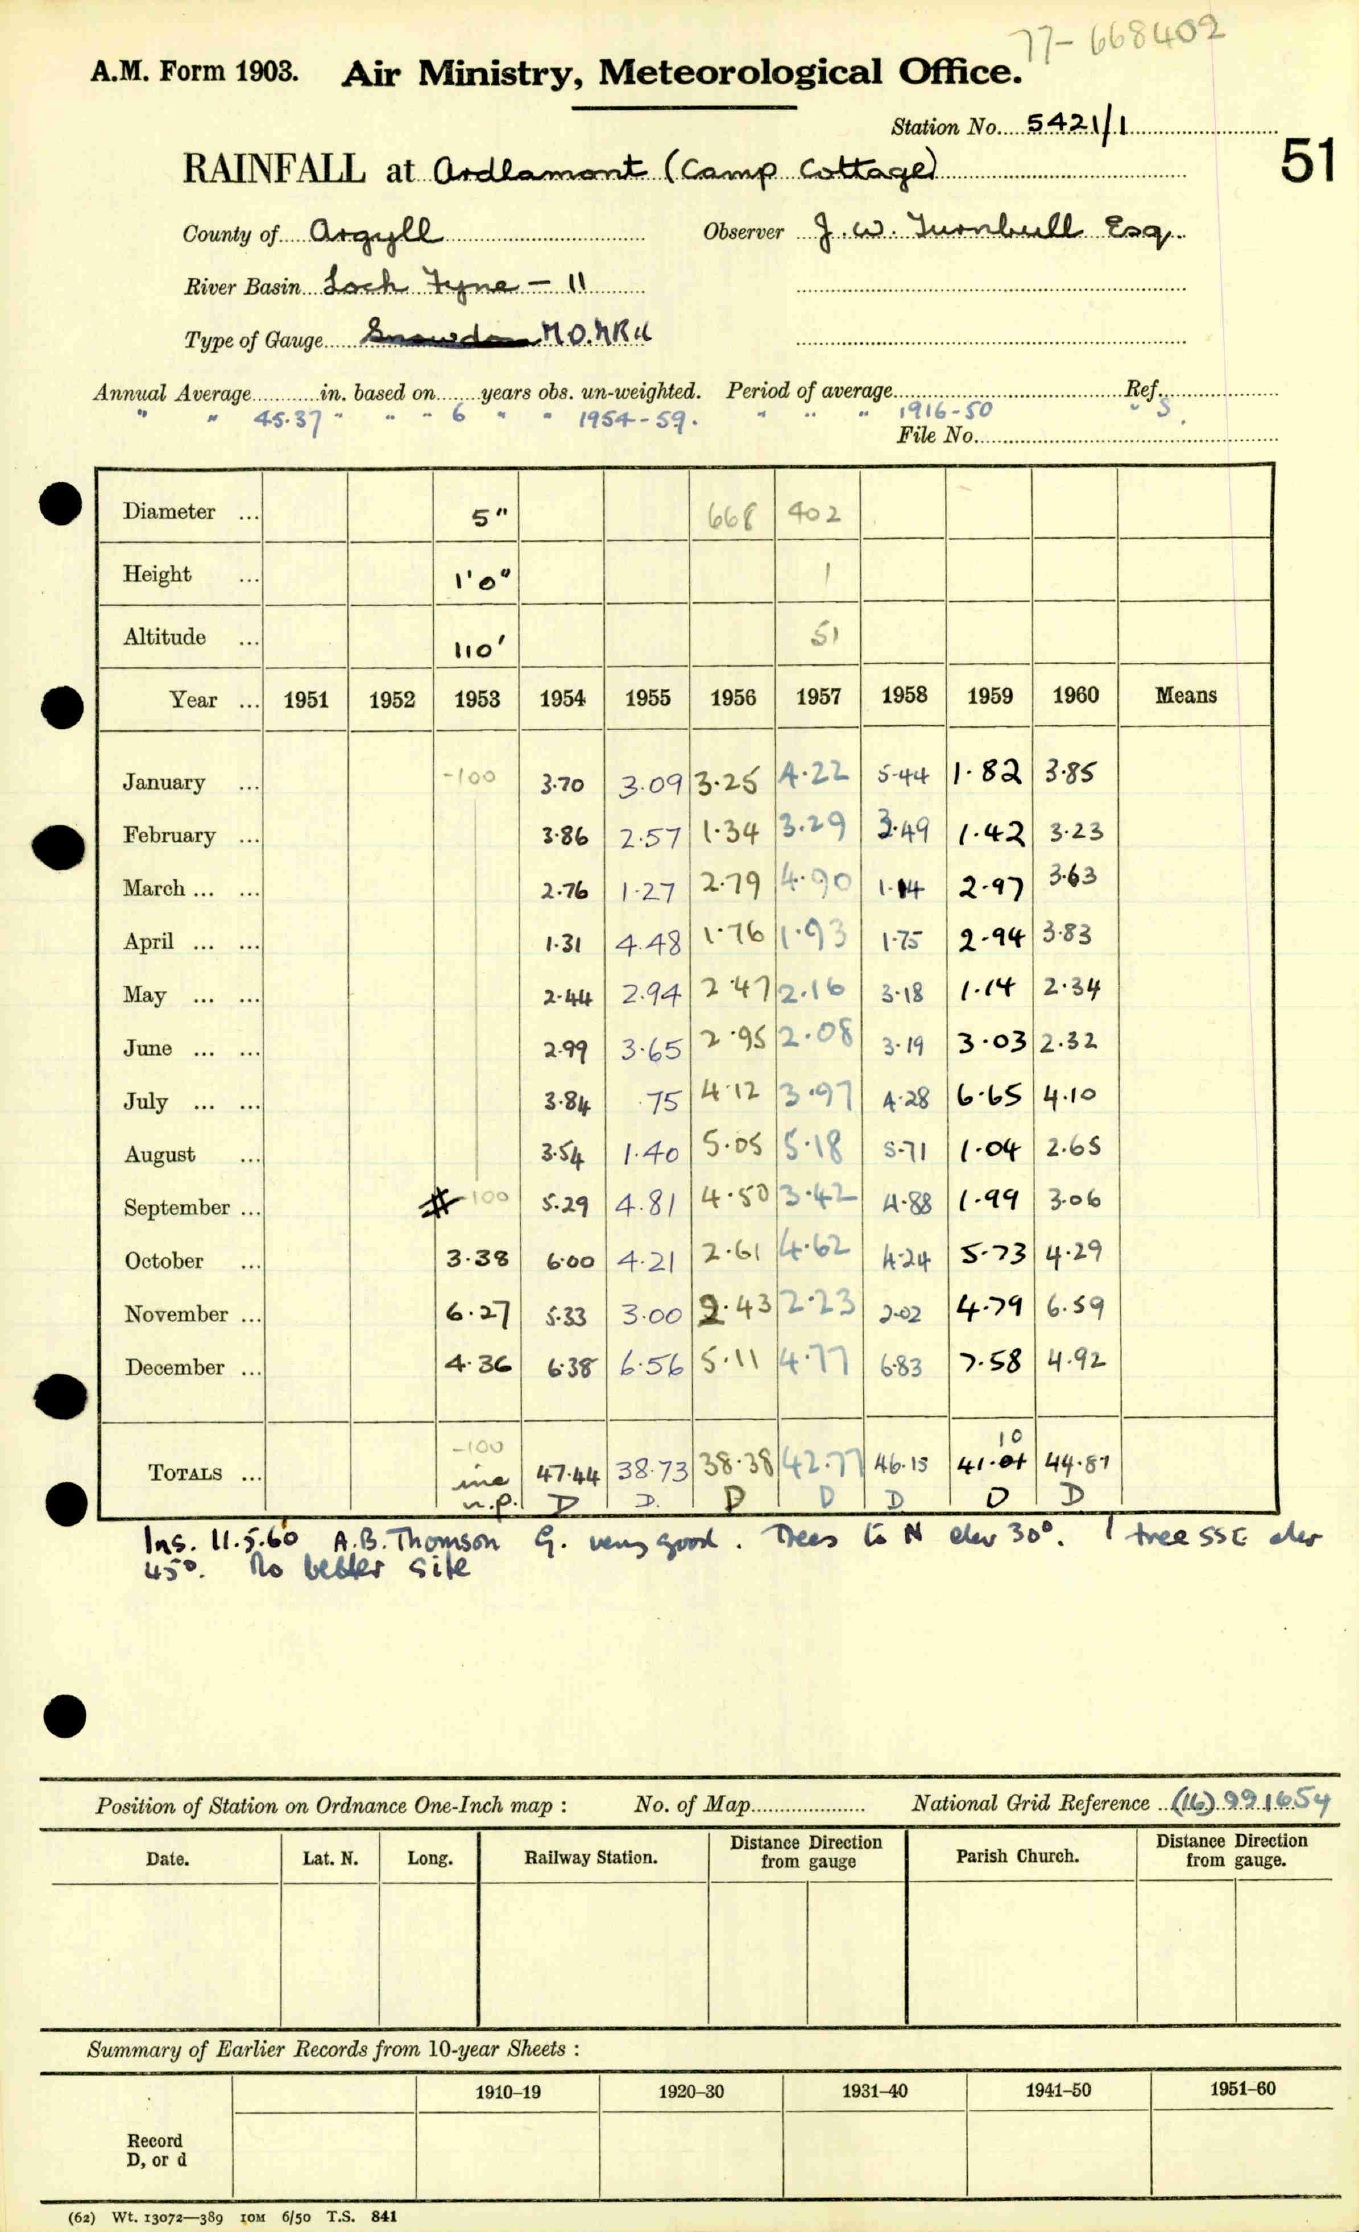 77-668402
A.M. Form 1903. Air Ministry, Meteorological Office.
Station No. 5421/1
51
RAINFALL at Ardlamont (Camp Cottage)
County of Argyll Observer J. W. Turnbull Esq.
River Basin Loch Fyne - 11
Type of Gauge Snowdon M.O. MkII
Annual Average in. based on years obs. un-weighted. Period of average Ref.
" " 45.37 " " " 6 " " 1954-59. " " " 1916-50 " S.
File No.
Diameter ... 5" 668 402
Height ... 1'0" 1
Altitude ... 110' 51
Year ... 1951 1952 1953 1954 1955 1956 1957 1958 1959 1960 Means
January ... -100 3.70 3.09 3.25 4.22 5.44 1.82 3.85
February ... 3.86 2.57 1.34 3.29 3.49 1.42 3.23
March ... ... 2.76 1.27 2.79 4.90 1.14 2.97 3.63
April ... ... 1.31 4.48 1.76 1.93 1.75 2.94 3.83
May ... ... 2.44 2.94 2.47 2.16 3.18 1.14 2.34
June ... ... 2.99 3.65 2.95 2.08 3.19 3.03 2.32
July ... ... 3.84 .75 4.12 3.97 4.28 6.65 4.10
August ... 3.54 1.40 5.05 5.18 5.71 1.04 2.65
September ... # -100 5.29 4.81 4.50 3.42 4.88 1.99 3.06
October ... 3.38 6.00 4.21 2.61 4.62 4.24 5.73 4.29
November ... 6.27 5.33 3.00 2.43 2.23 2.02 4.79 6.59
December ... 4.36 6.38 6.56 5.11 4.77 6.83 7.58 4.92
-100 10
TOTALS ... inc 47.44 38.73 38.38 42.77 46.15 41.01 44.81
n.p. D D. D D D D D
Ins. 11.5.60 A.B. Thomson G. very good. Trees to N elev 30°. 1 tree SSE elev
45°. No better site
Position of Station on Ordnance One-Inch map : No. of Map National Grid Reference (16) 991654
Date. Lat. N. Long. Railway Station. Distance Direction from gauge Parish Church. Distance Direction from gauge.
Summary of Earlier Records from 10-year Sheets :
1910-19 1920-30 1931-40 1941-50 1951-60
Record
D, or d
(62) Wt. 13072—389 10M 6/50 T.S. 841